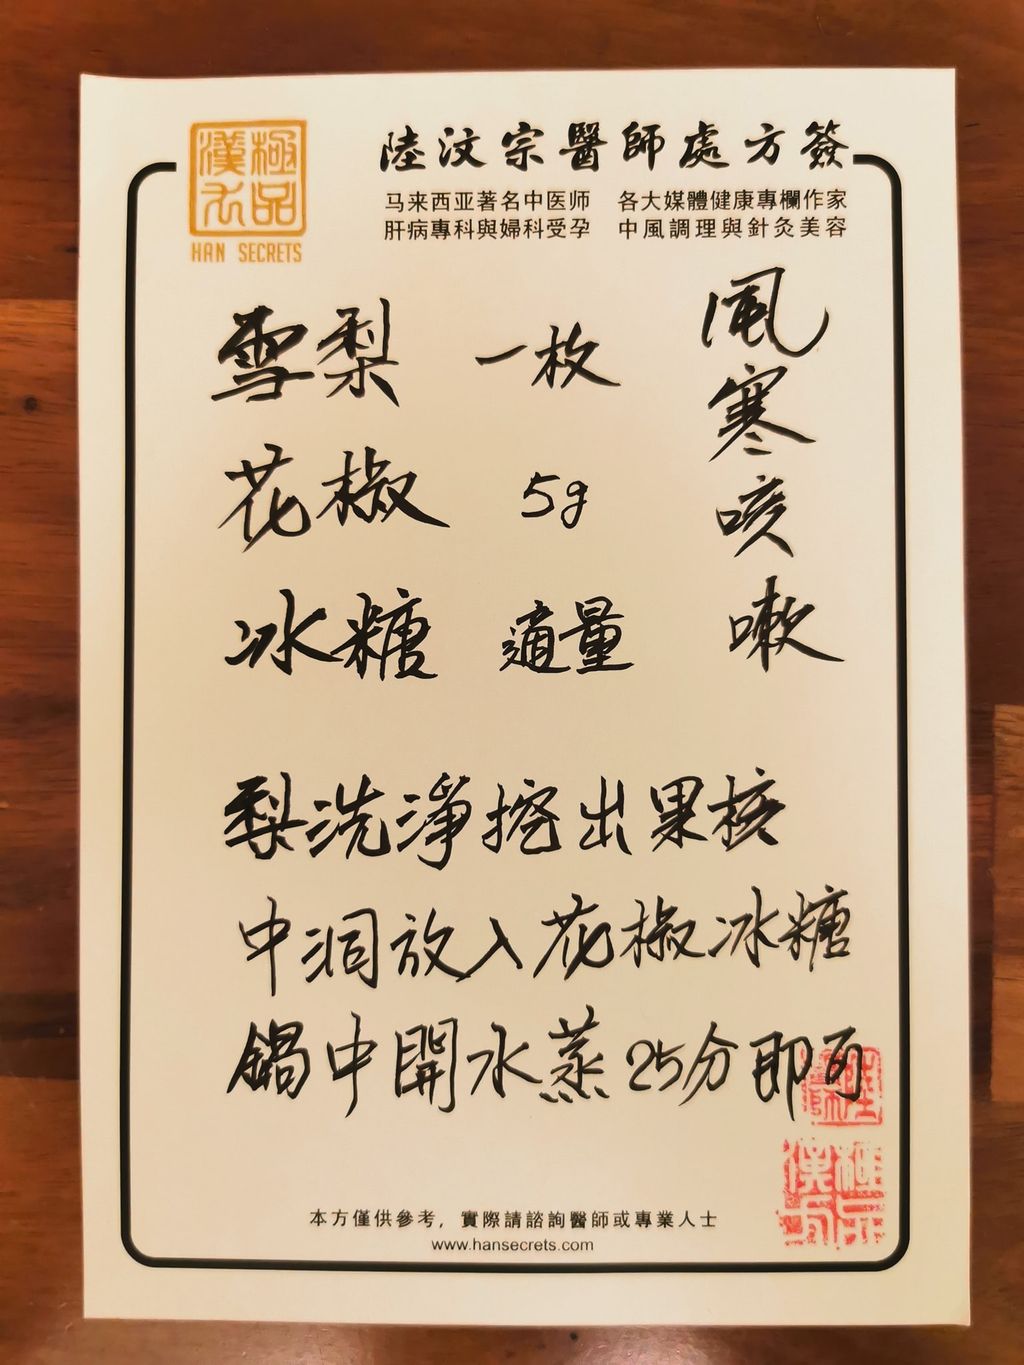 陸汶宗醫師處方簽
马来西亚著名中医师 各大媒體健康專欄作家
肝病專科與婦科受孕 中風調理與針灸美容
HAN SECRETS
風寒咳嗽
雪梨 一枚
花椒 5g
冰糖 適量
梨洗淨挖出果核
中洞放入花椒冰糖
鍋中開水蒸25分即可
本方僅供參考，實際請諮詢醫師或專業人士
www.hansecrets.com